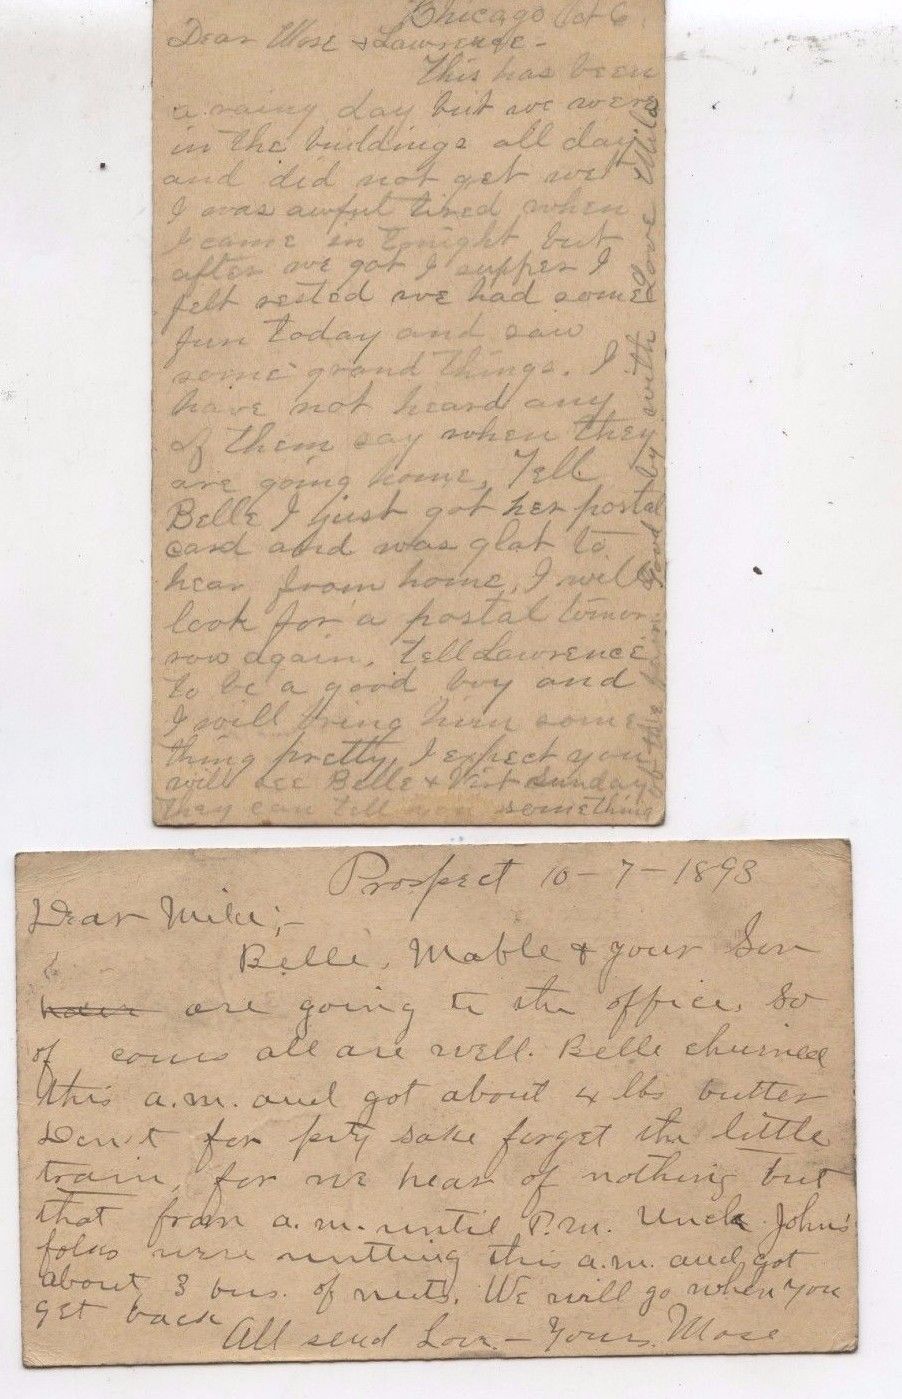 Chicago Oct 6
Dear Mose & Lawrence-
This has been
a rainy day but we were
in the buildings all day
and did not get wet
I was awful tired when
I came in tonight but
after we got I supper I
felt rested we had some
fun today and saw
some grand things. I
have not heard any
of them say when they
are going home, Tell
Belle I just got her postal
card and was glat to
hear from home, I will
look for a postal tomor
row again, tell Lawrence
to be a good boy and
I will bring him some
thing pretty, I expect you
will see Belle & Vist Sunday
They can tell you something
of the fair. Good by with Love Mila
Prospect 10-7-1893
Dear Mila;-
Belle, Mable & your Son
are going to the office. So
of cours all are well. Belle churned
this a.m. and got about 4 lbs butter
Don't for pity sake forget the little
train, for we hear of nothing but
that from a.m. until P.m. Uncle John's
folks were nutting this a.m. and got
about 3 bus. of nuts. We will go when you
get back
All send Love - Yours, Mose